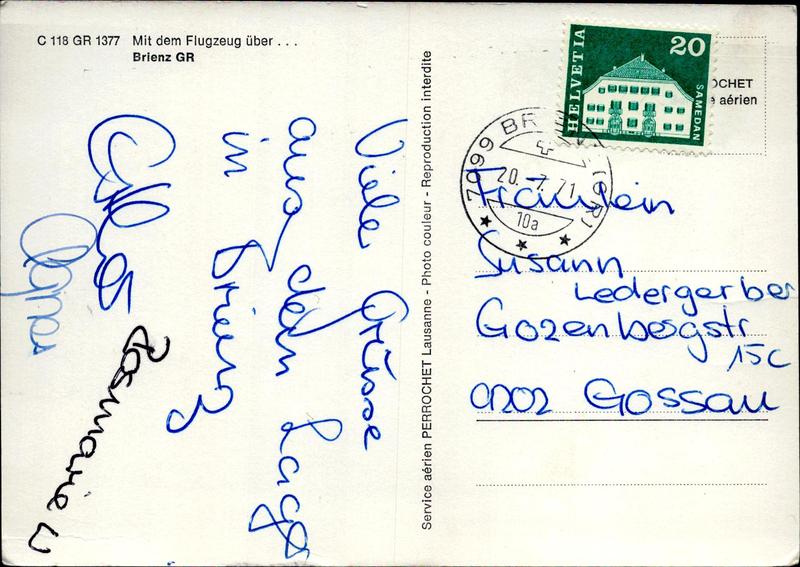 C 118 GR 1377 Mit dem Flugzeug über . . .
Brienz GR
Viele Grüsse
aus dem Lager
in Brienz
Agnes
Rosmarie W
Service aérien PERROCHET Lausanne - Photo couleur - Reproduction interdite
HELVETIA
20
SAMEDAN
OCHET
e aérien
7099 BR (GR)
20. 7. 71
10a
Fräulein
Susann
Ledergerber
Gozenbergstr
15c
9202 Gossau